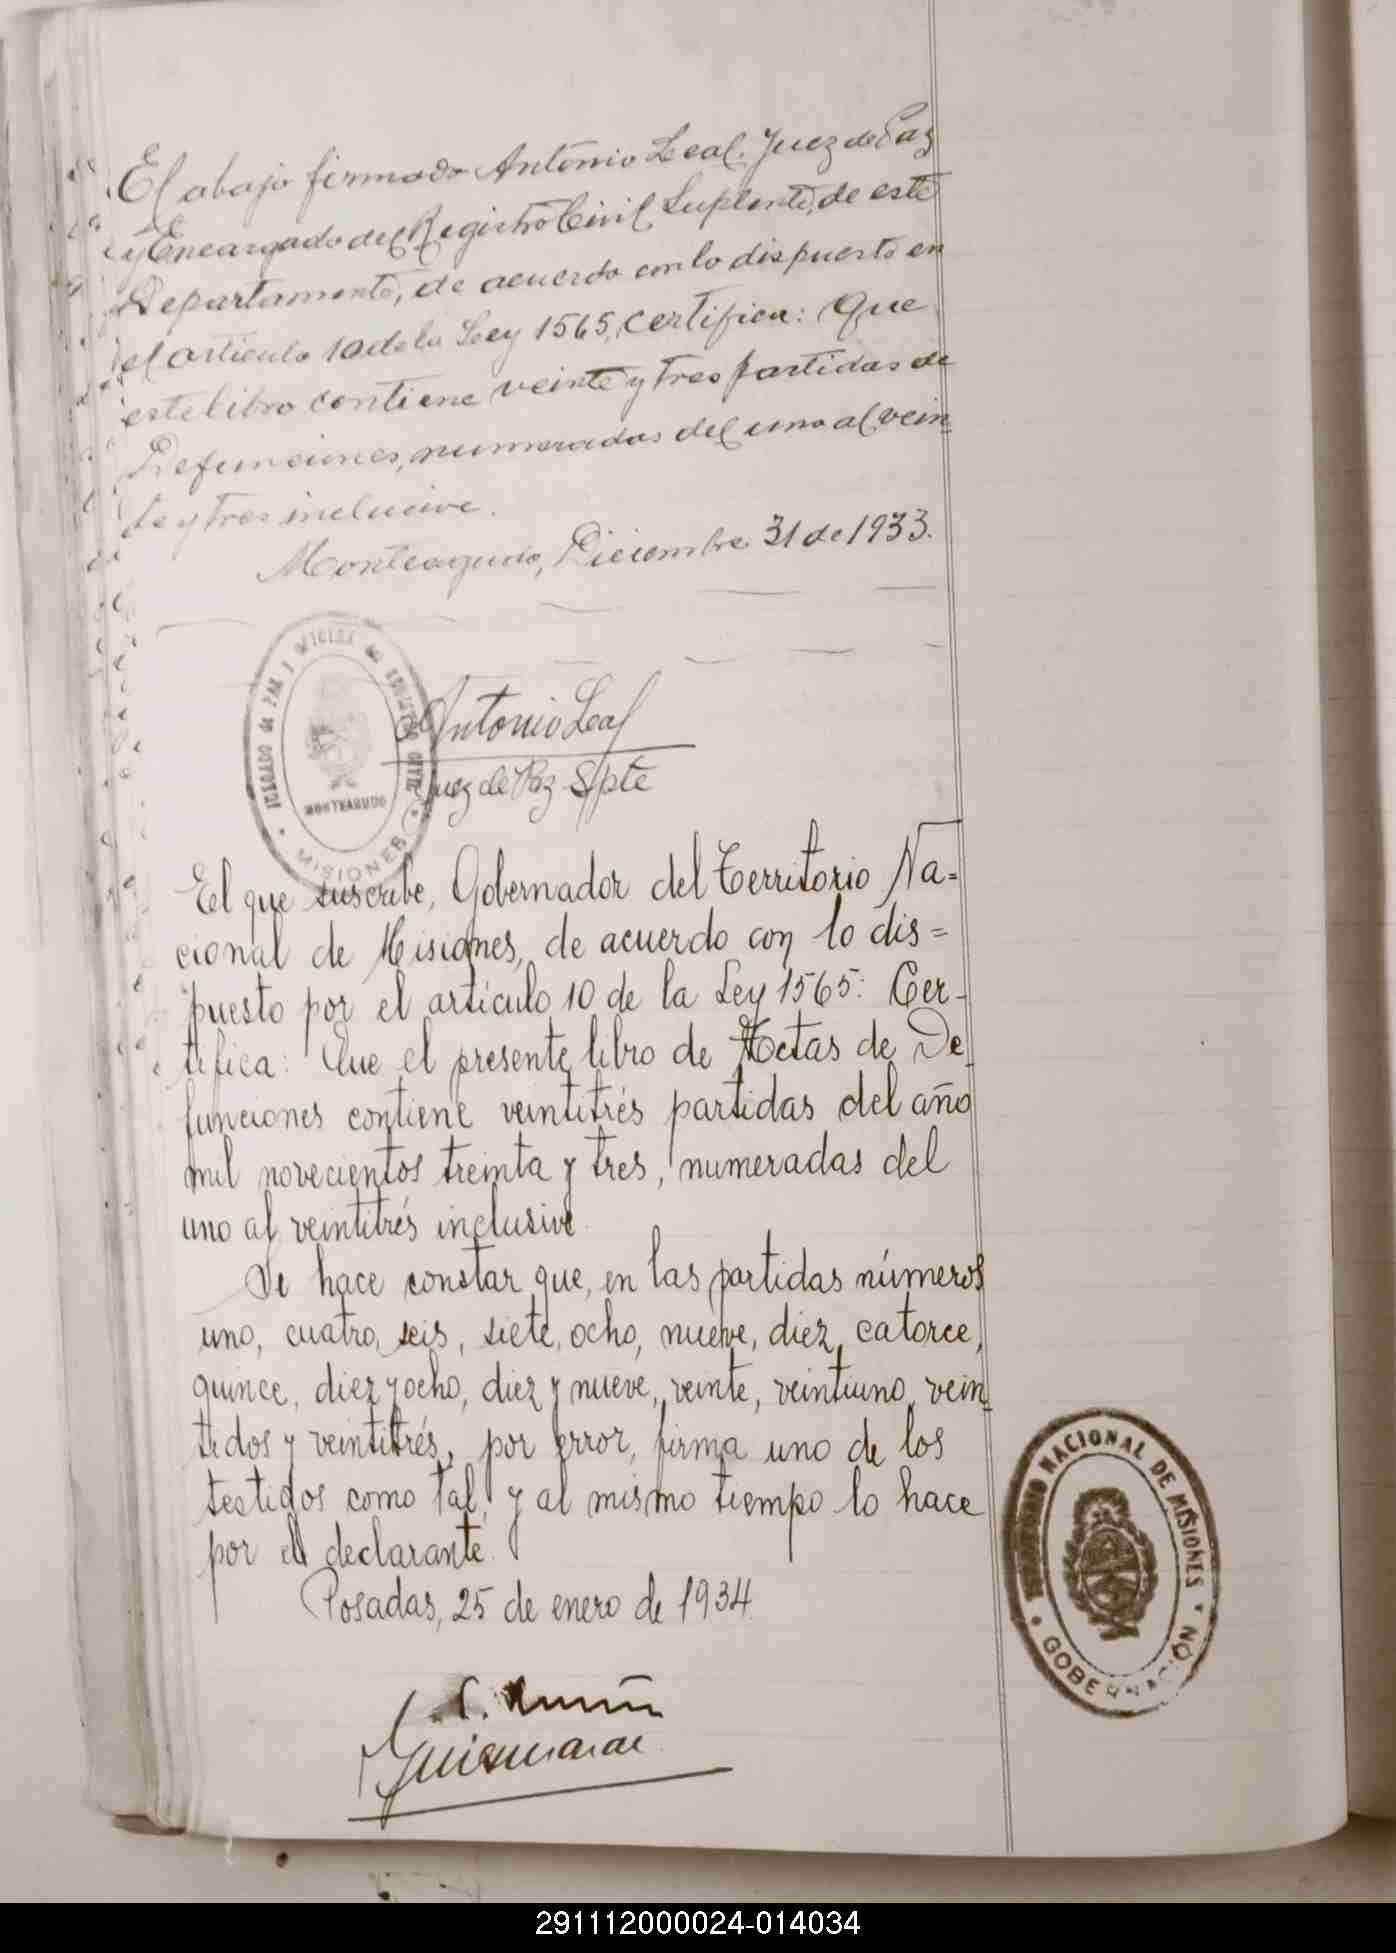 El abajo firmado Antonio Leal, Juez de Paz
y Encargado del Registro Civil Suplente, de este
Departamento, de acuerdo con lo dispuesto en
el articulo 10 de la Ley 1565, certifica: Que
este libro contiene veinte y tres partidas de
Defunciones, numeradas del uno al vein-
te y tres inclusive.
Monteagudo, Diciembre 31 de 1933.
JUZGADO de PAZ y OFICINA del REGISTRO CIVIL
MONTEAGUDO
MISIONES
Antonio Leal
Juez de Paz Spte
El que suscribe, Gobernador del Territorio Na=
cional de Misiones, de acuerdo con lo dis=
puesto por el artículo 10 de la Ley 1565: Cer-
tifica: Que el presente libro de Actas de De-
funciones contiene veintitrés partidas del año
mil novecientos treinta y tres, numeradas del
uno al veintitrés inclusive.
Se hace constar que, en las partidas números
uno, cuatro, seis, siete, ocho, nueve, diez, catorce,
quince, diez y ocho, diez y nueve, veinte, veintiuno, vein-
tidos y veintitrés, por error, firma uno de los
testigos como tal, y al mismo tiempo lo hace
por el declarante.
Posadas, 25 de enero de 1934.
TERRITORIO NACIONAL DE MISIONES
GOBERNACIÓN
291112000024-014034